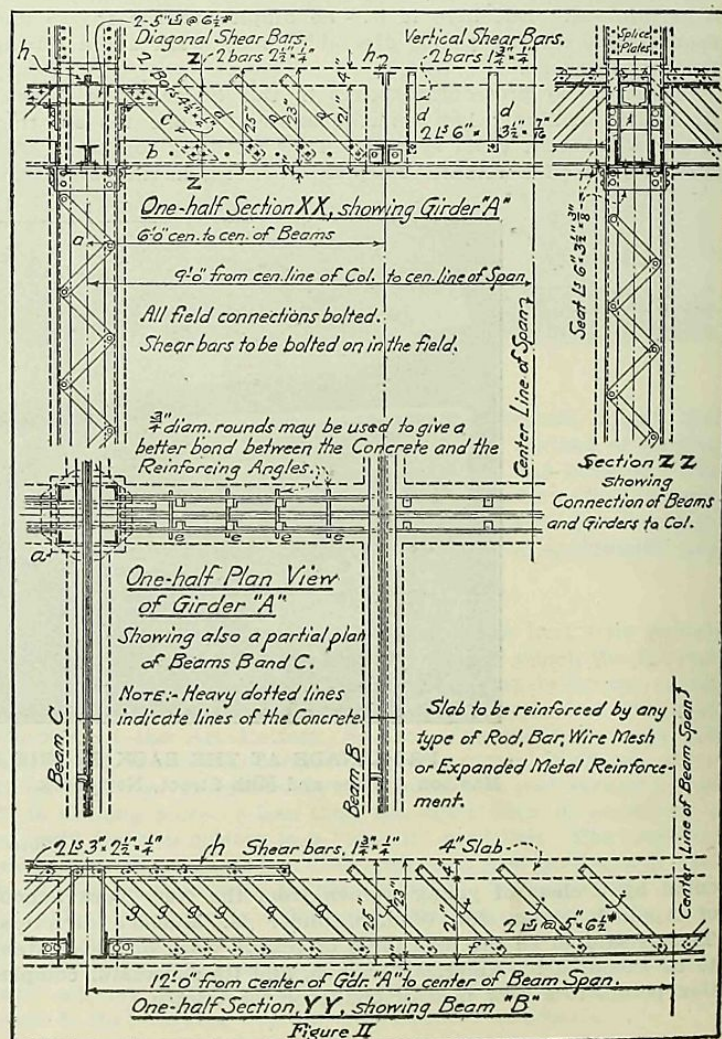 2-5" Ls @ 6½#
Diagonal Shear Bars.
2 bars 2½"×¼"
h
Z
h
Vertical Shear Bars.
2 bars 1¾"×¼"
Splice
Plates
2
Bars 4½"×
c
b
d
d
d
4"
25"
23"
21"
2"
d
d
2 Ls 6"×
3½"×7/16"
Z
One-half Section XX, showing Girder "A"
a
6'0" cen. to cen. of Beams
9'-0" from cen. line of Col. to cen. line of Span
All field connections bolted.
Shear bars to be bolted on in the field.
Center Line of Span
Seat L 6"×3½"×3/8"
¾" diam. rounds may be used to give a
better bond between the Concrete and the
Reinforcing Angles.
Section ZZ
showing
Connection of Beams
and Girders to Col.
e
e
e
e
a
One-half Plan View
of Girder "A"
Showing also a partial plan
of Beams B and C.
NOTE:- Heavy dotted lines
indicate lines of the Concrete.
Beam C
Beam B
Slab to be reinforced by any
type of Rod, Bar, Wire Mesh
or Expanded Metal Reinforce-
ment.
Center Line of Beam Span
2 Ls 3"×2½"×¼"
h
Shear bars, 1¾"×¼"
4" Slab
g
g
g
g
g
g
25"
23"
21"
4"
2"
f
f
f
f
2 Ls @ 5"×6½#
12'-0" from center of Gdr. "A" to center of Beam Span.
One-half Section, YY, showing Beam "B"
Figure II